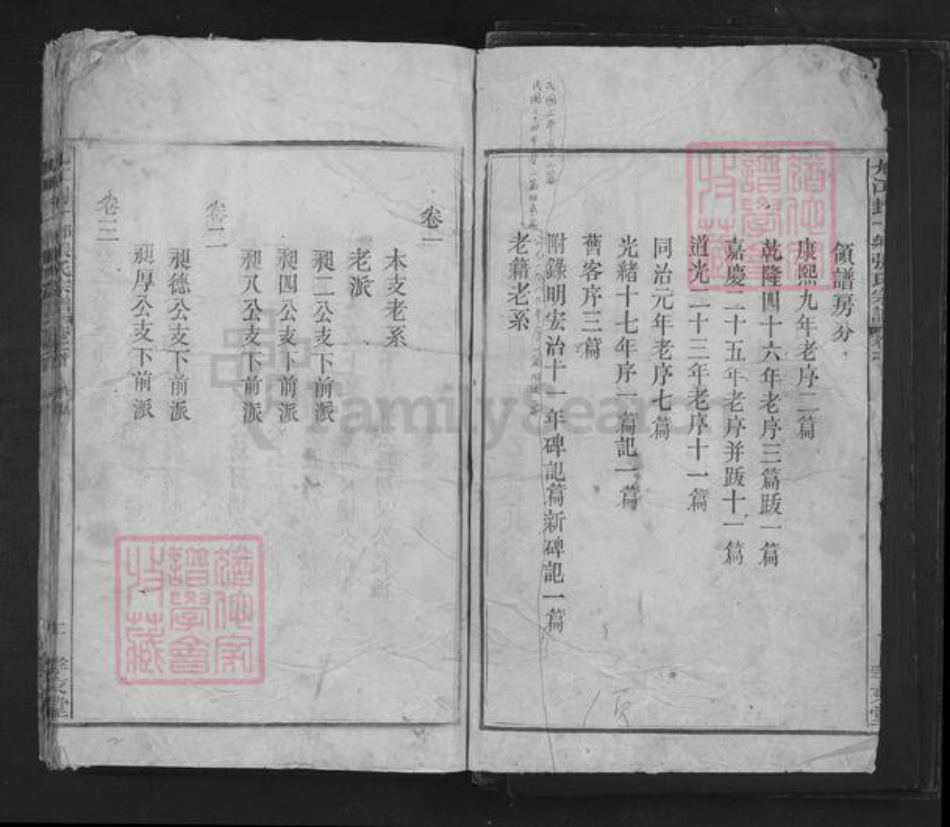 領譜房分
康熙九年老序二篇
乾隆四十六年老序三篇跋一篇
嘉慶二十五年老序并跋十一篇
道光二十三年老序十一篇
同治元年老序七篇
光緒十七年序一篇記一篇
舊客序三篇
附錄明宏治十一年碑記篇新碑記一篇
老籍老系
卷一
本支老系
老派
昶二公支下前派
昶四公支下前派
昶八公支下前派
卷二
昶德公支下前派
昶厚公支下前派
卷三
FamilySearch